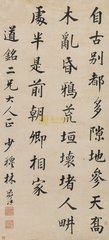 自古别都多隙地參天喬
木亂昏鴉荒垣壞堵人畊
處半是前朝卿相家
道銘二兄大人正 少穆林